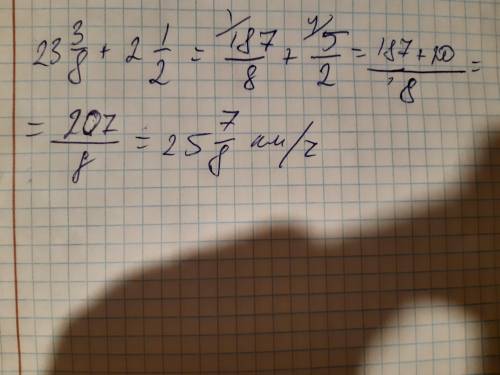 23 3/8 + 2 1/2 = 1/ 187/8 + 4/ 5/2 = (187+20)/8 =
= 207/8 = 25 7/8 км/ч